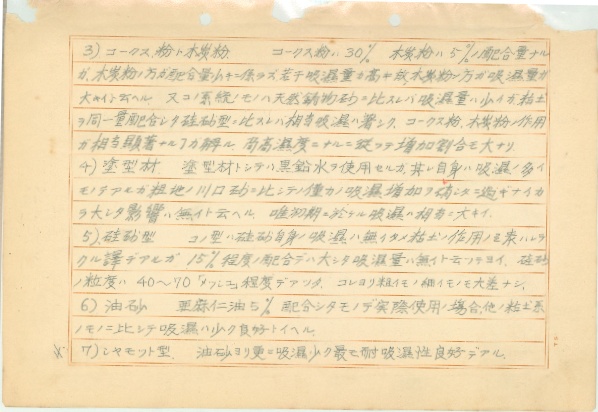 3) コークス粉ト木炭粉　コークス粉ハ30%　木炭粉ハ5%ノ配合量ナル
ガ、木炭粉ノ方ガ配合量少キニ係ラズ若干吸湿量ガ高キ故、木炭粉ノ方ガ吸湿量ガ
大キイト云ヘル。又コノ系統ノモノハ天然鋳物砂ニ比スレバ吸湿量ハ少イガ、粘土
ヲ同一量配合シタ硅砂型ニ比スレバ相当吸湿ハ著シク、コークス粉、木炭粉ノ作用
ガ相当顕著ナルヲ力解ル　尚高湿度ニナルニ従ヒテ増加割合モ大ナリ
4) 塗型材　塗型材トシテハ黒鉛水ヲ使用セルガ、其レ自身ハ吸湿ノ多イ
モノデアルガ粗地ノ川口砂ニ比シテノ僅カノ吸湿増加ヲ示シタニ過ギナイカ
ラ大シタ影響ハ無イト云ヘル。唯初期ニ於ケル吸湿ハ相当ニ大キイ。
5) 硅砂型　コノ型ハ硅砂自身ノ吸湿ハ無イタメ粘土ノ作用ノミ表ハレテ
クル譯デアルガ 15%程度ノ配合デハ大シタ吸湿量ハ無イト云ツテヨイ。硅砂
ノ粒度ハ 40〜70「メッシュ」程度デアツタ。コレヨリ粗イモノ細イモノモ大差ナシ。
6) 油砂　亜麻仁油5%配合シタモノデ実際使用ノ場合、他ノ粘土系
ノモノニ比シテ吸湿ハ少ク良好トイヘル。
7) シャモット型　油砂ヨリ更ニ吸湿少ク最モ耐吸湿性良好デアル。